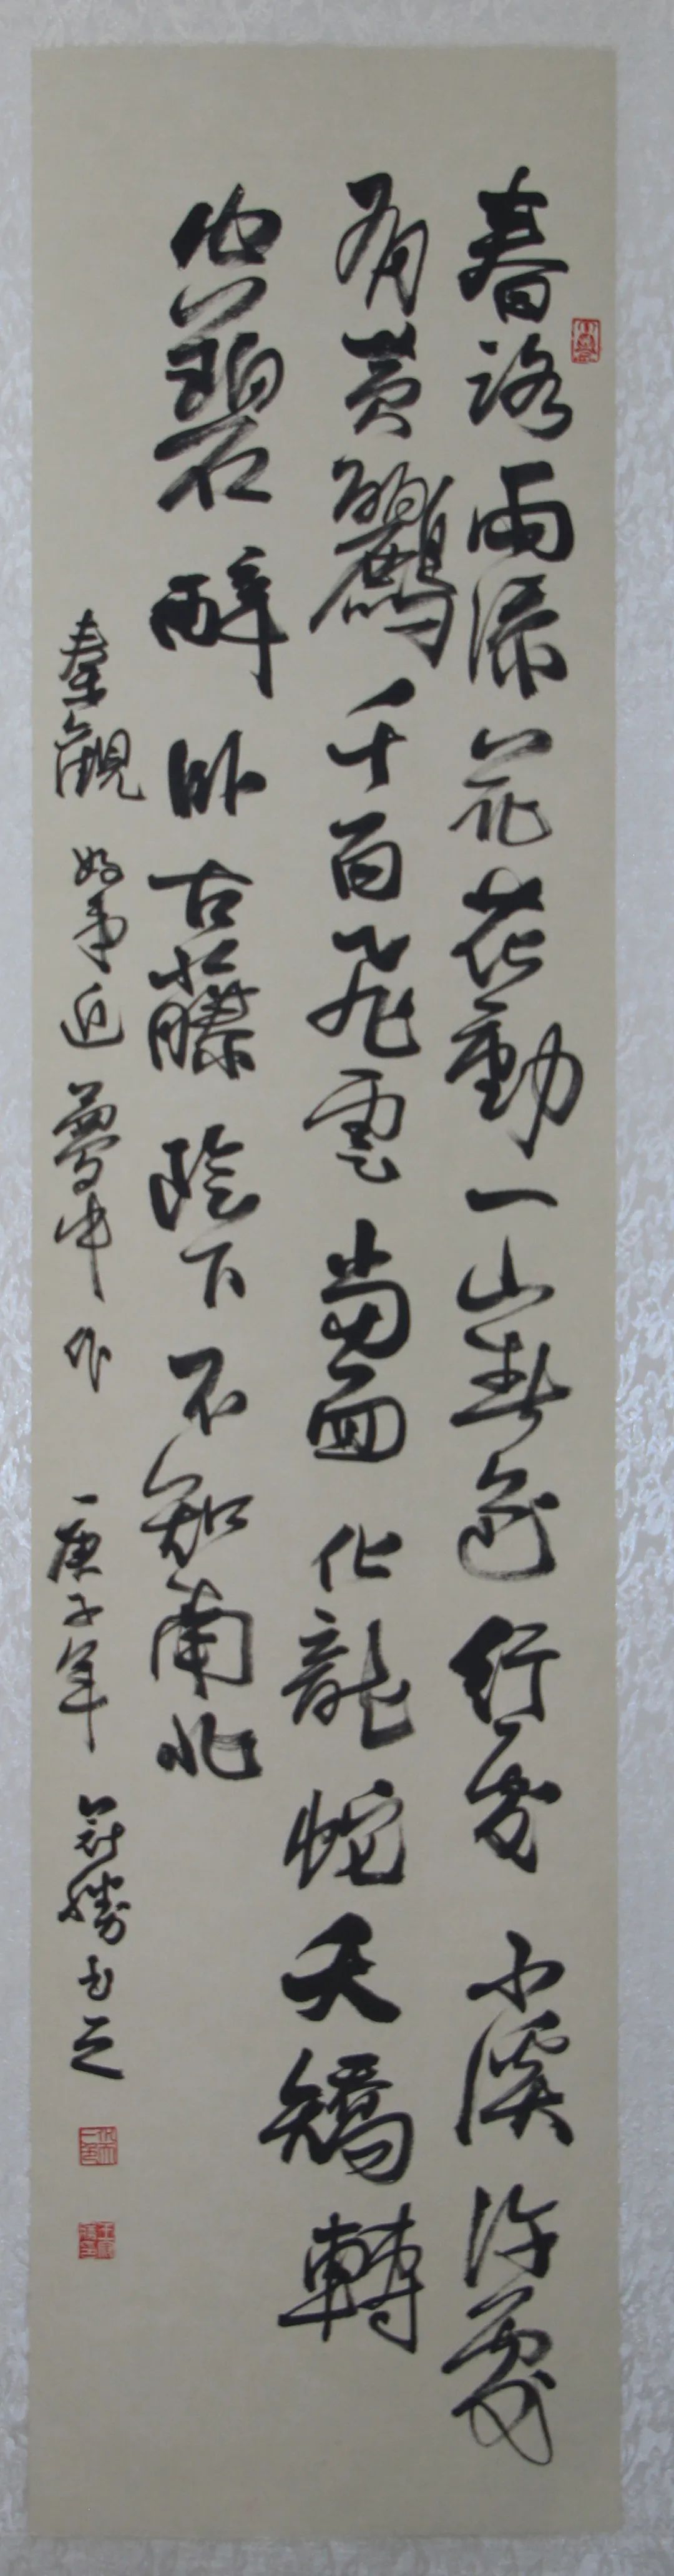 春路雨添花花動一山春色行到小溪深處
有黃鸝千百飛雲當面化龍蛇夭矯轉
空碧醉卧古藤陰下不知南北
秦觀 好事近 夢中作 庚子年 勝書之